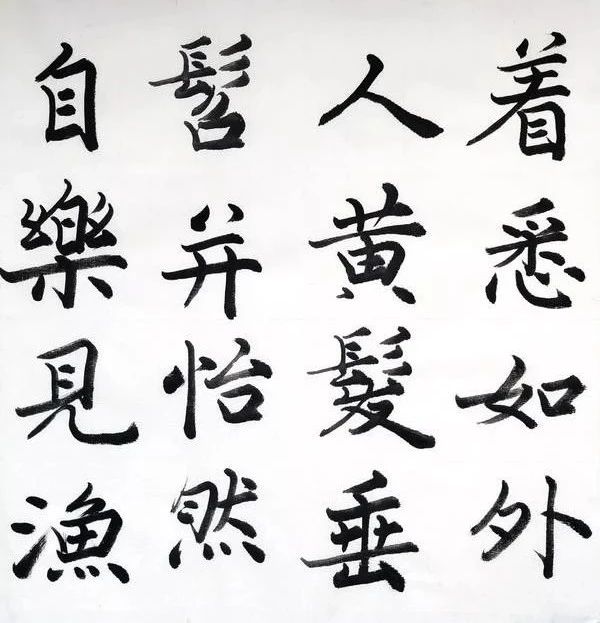 着悉如外
人黄髮垂
髫并怡然
自樂見漁